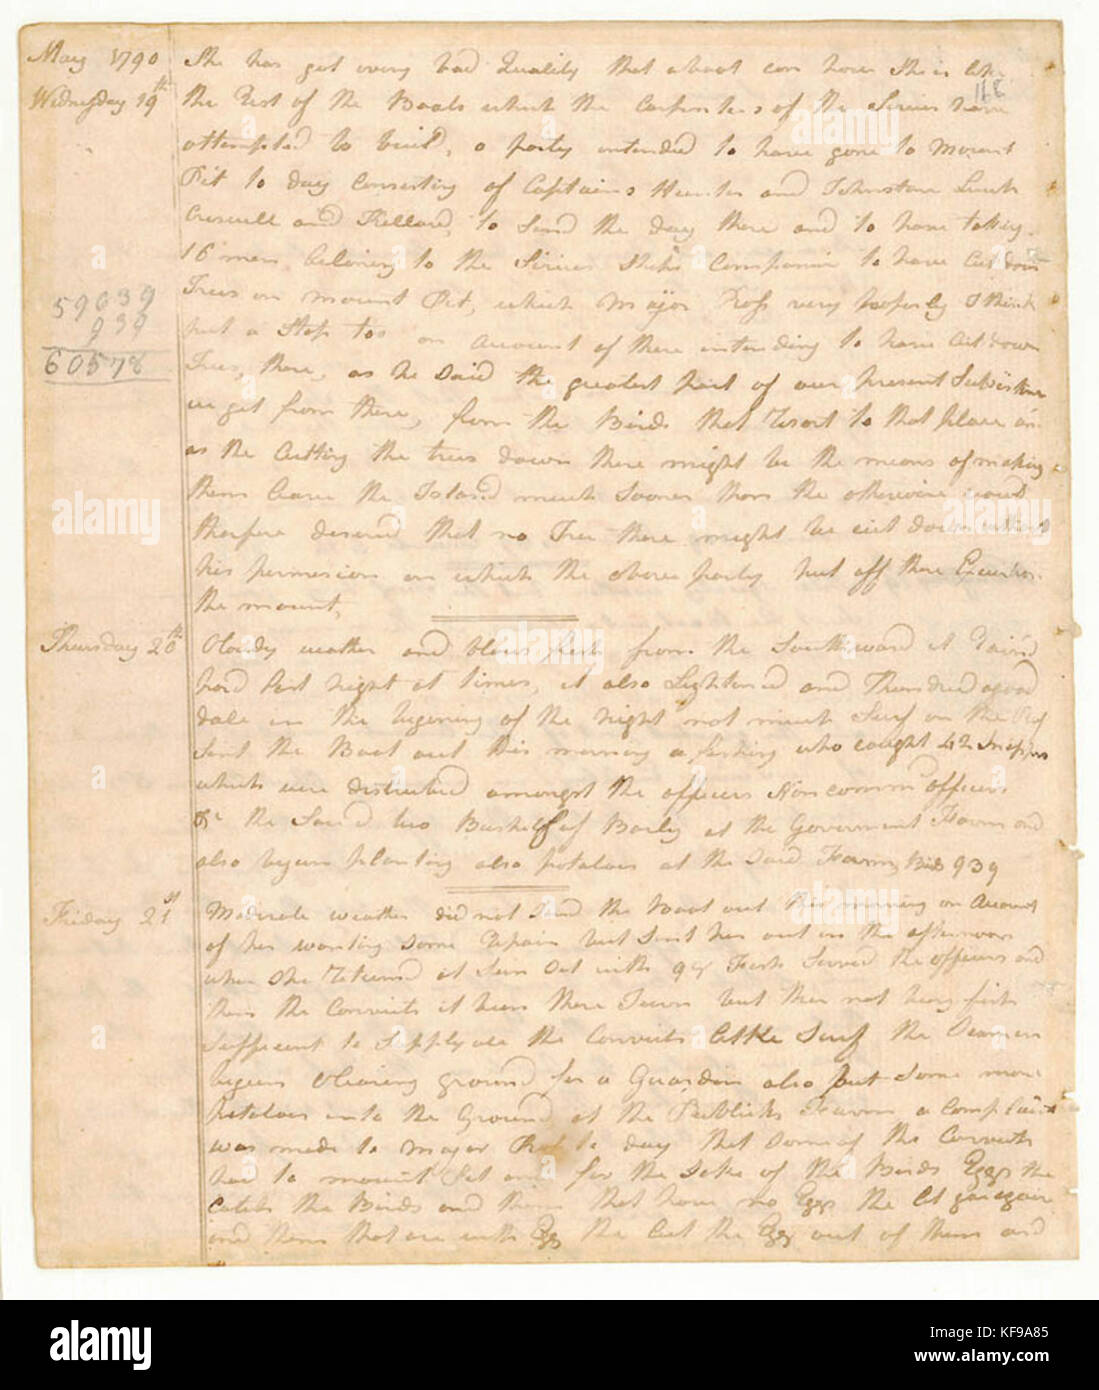 May 1790
Wednesday 19th
168
She has got every bad Quality that a boat can have She is like
the Rest of the Boats which the Carpenters of the Sirius have
attempted to build, a party intended to have gone to Mount
Pit to day Consisting of Captains Hunter and Johnstone Lieuts
Creswell and Kellow, to Send the day there and to have taking
16 men belonging to the Sirius Ships Companie to have Cut down
Trees on Mount Pit, which Major Ross very properly I think
put a Stop too on Account of there intending to have Cut down
Trees, there, as he Said the greatest part of our present Subsistance
we get from there, from the Birds that Resort to that place and
as the Cutting the trees down there might be the means of making
them leave the Island much Sooner than the otherwise would
therfore desired that no Tree there might be cut down without
his permession on which the above party put off there Excursion
the mount,
59039
939
60578
Thursday 20th
Cloudy weather and blows fresh from the Southward it Rain'd
hard last night at times, it also Lightened and Thundred a good
dale in the begening of the night not much Surf on the Reef
Sent the Boat out this morning a fishing who caught 42 Snappers
which were distributed amongst the officers Non comm officers
&c the Sow'd two Bushels of Barly at the Goverment Farm and
also begun planting also potatoes at the Said Farm, Birds 939
Friday 21st
Moderate weather did not Send the Boat out this morning on Account
of her wanting Some Repair but Sent her out in the afternoon
when She Returned at Sun Set with 98 Fish Served the officers and
then the Convicts it been there Turn but ther not being fish
Sufficent to Supply all the Convicts Little Surf the Seamen
begun Clearing ground for a Guardin also put Some more
Potatoes into the Ground at the Publick Farm, a Complaint
was made to Major Ross to day that Some of the Convicts
had to mount Pit only for the Sake of the Birds Eggs the
Catch the Birds and them that have no Eggs the let go again
and them that are with Egg the Cut the Egg out of them and
alamy
Image ID: KF9A85
www.alamy.com